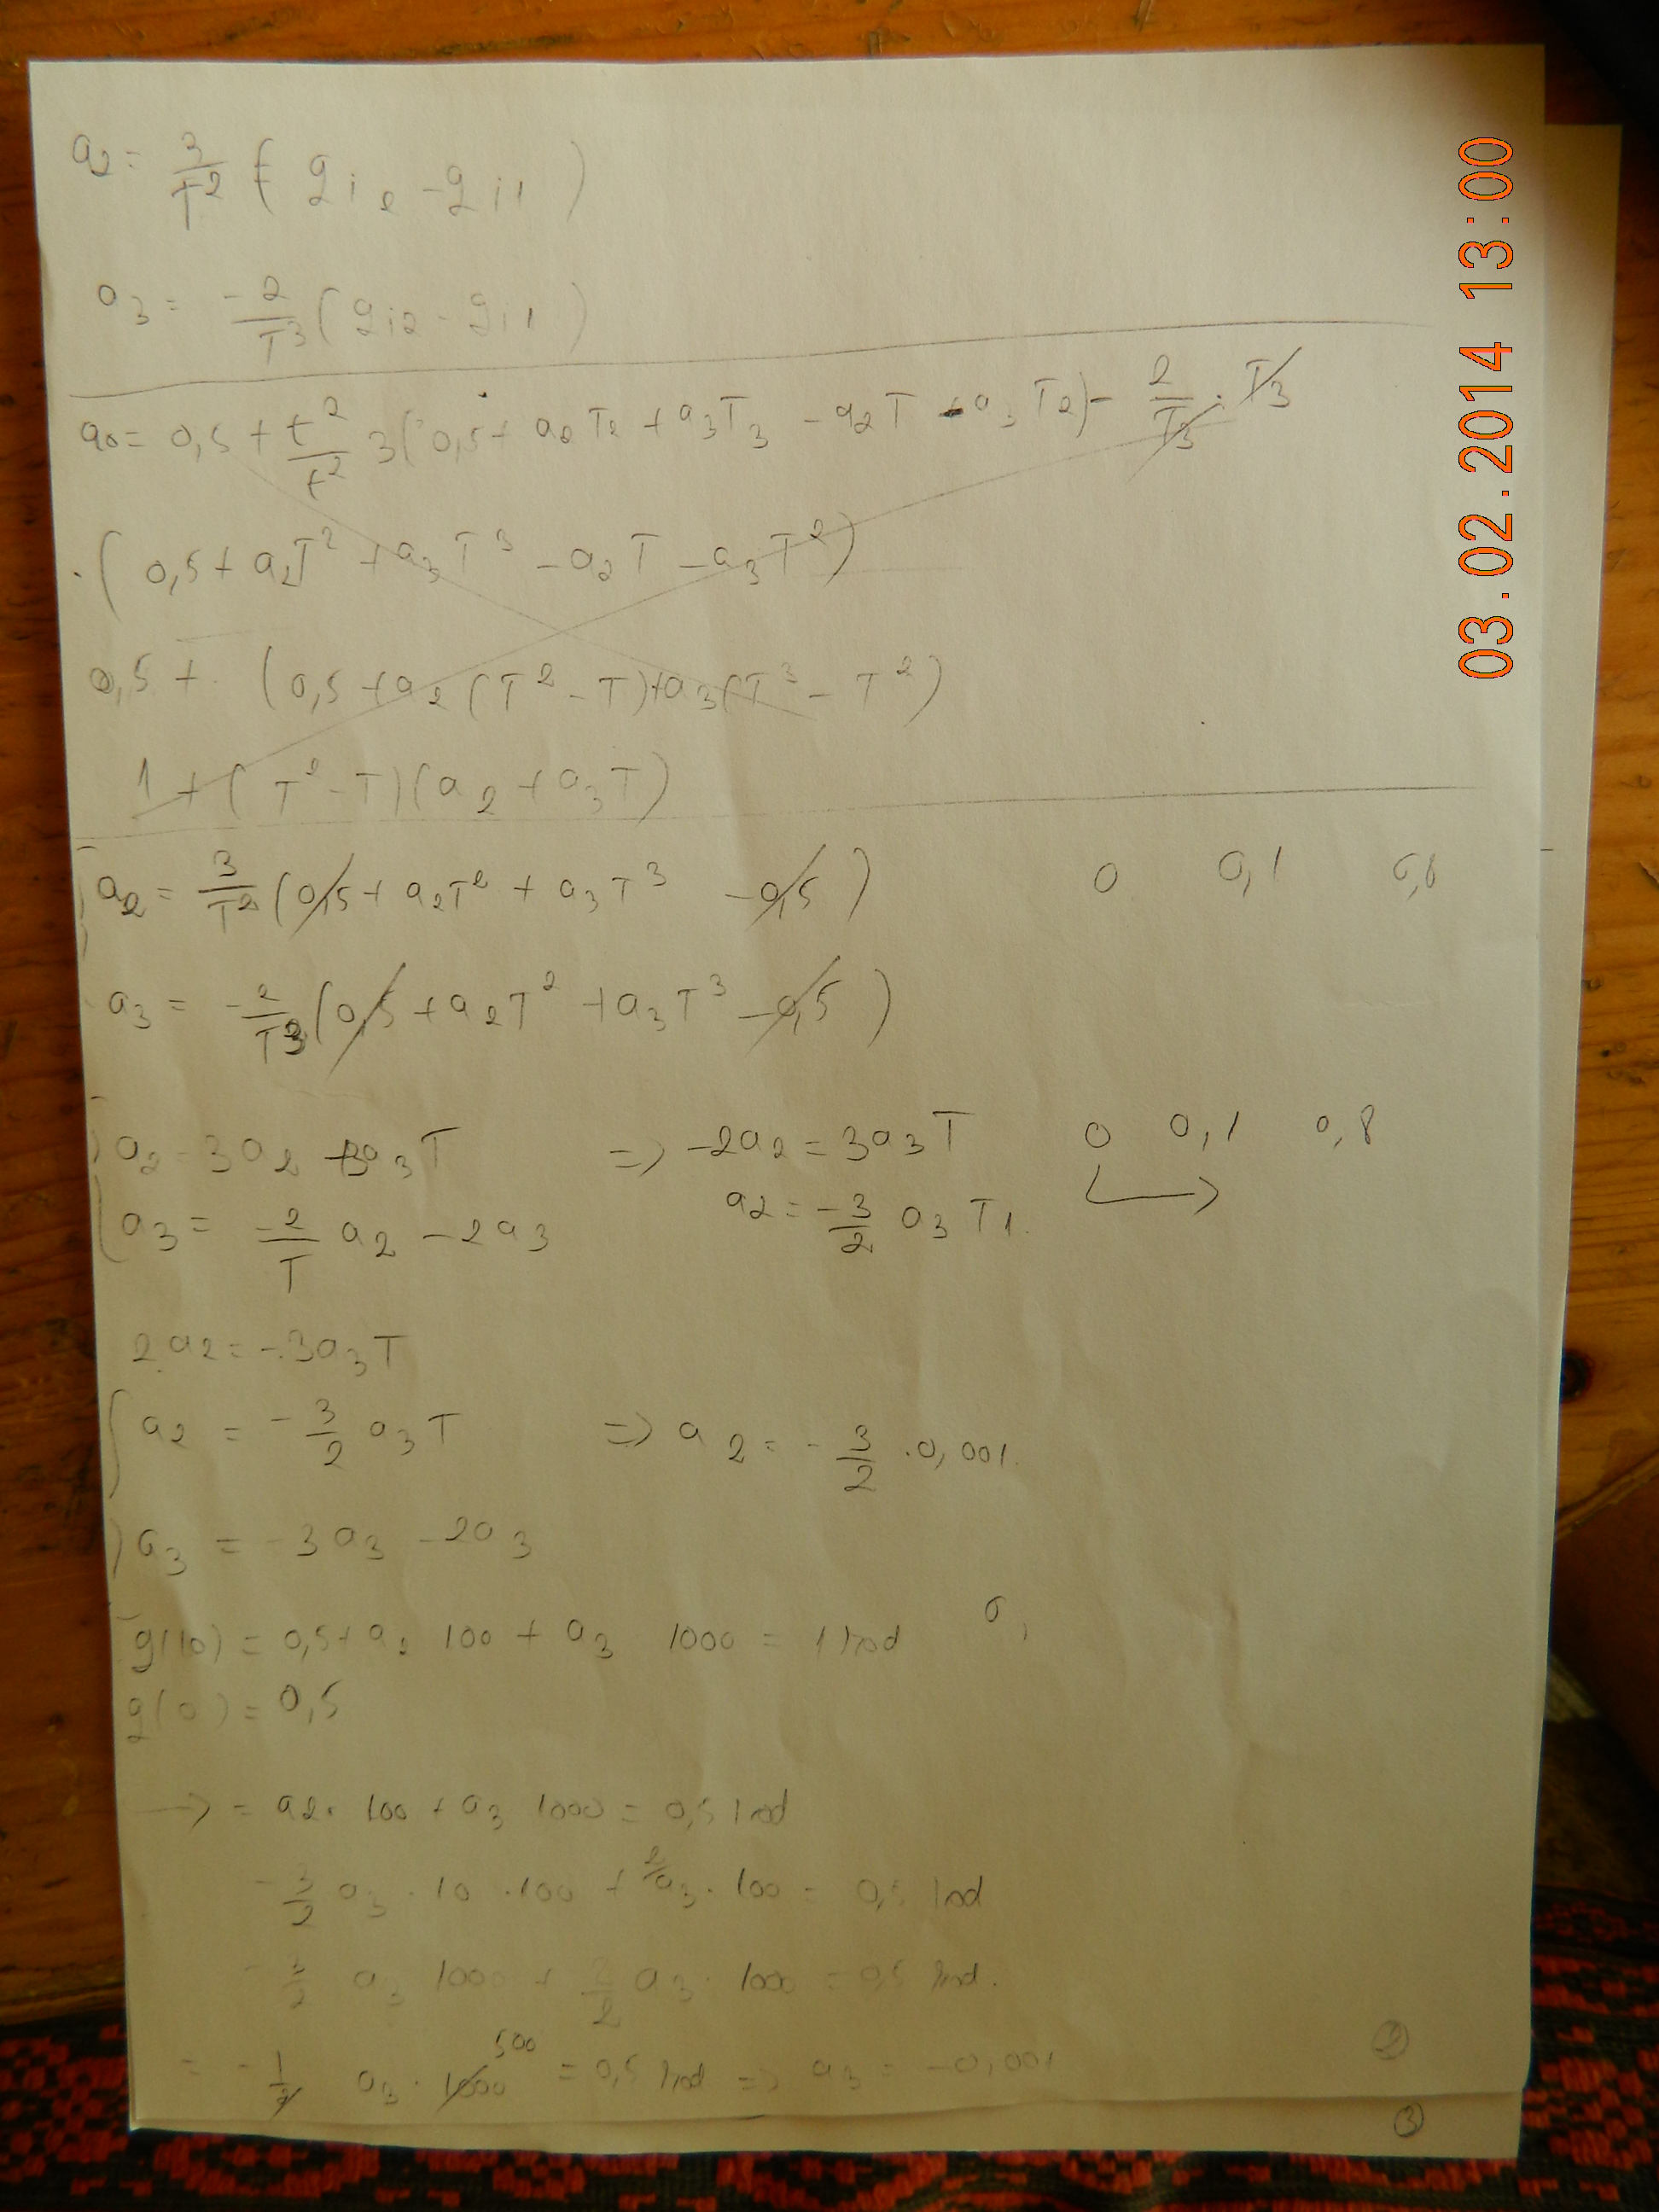 a2 = 3/T2 ( gi2 - gi1 )
a3 = -2/T3 ( gi2 - gi1 )
a0 = 0,5 + t2/t2 3(0,5 + a2T2 + a3T3 - a2T - a3T2) - 2/T3 · T3
·( 0,5 + a2T2 + a3T3 - a2T - a3T2)
0,5 + (0,5 + a2(T2 - T) + a3(T3 - T2)
1 + (T2 - T)(a2 + a3T)
a2 = 3/T2 (0,5 + a2T2 + a3T3 - 0,5) 0 0,1
a3 = -2/T3 (0,5 + a2T2 + a3T3 - 0,5)
a2 = 3a2 + 3a3T => -2a2 = 3a3T 0 0,1 0,8
a3 = -2/T a2 - 2a3 a2 = -3/2 a3 T1
2a2 = -3a3T
a2 = -3/2 a3T => a2 = -3/2 · 0,001
a3 = -3a3 - 2a3
g(10) = 0,5 + a2 100 + a3 1000 = 1 rad
g(0) = 0,5
-> = a2 · 100 + a3 1000 = 0,5 rad
-3/2 a3 · 10 · 100 + 2/2 a3 · 100 = 0,5 rad
-3/2 a3 1000 + 2/2 a3 · 1000 = 0,5 rad.
= -1/2 a3 · 1000 500 = 0,5 rad => a3 = -0,001
2
3
03.02.2014 13:00